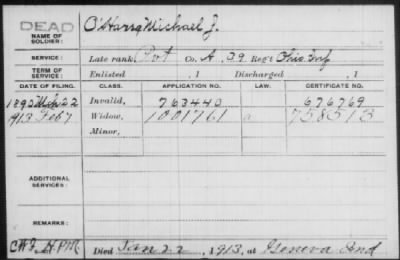 DEAD
NAME OF SOLDIER: O'Hara Michael J.
SERVICE: Late rank, Pvt Co. A, 39 Reg't Ohio Inf
TERM OF SERVICE: Enlisted , 1 Discharged , 1
DATE OF FILING. CLASS. APPLICATION NO. LAW. CERTIFICATE NO.
1890 Mch 22 Invalid, 763440 676769
1913 Feb 7 Widow, 1001761 a 758513
Minor,
ADDITIONAL SERVICES:
REMARKS:
Died Jan 22, 1913, at Geneva Ind